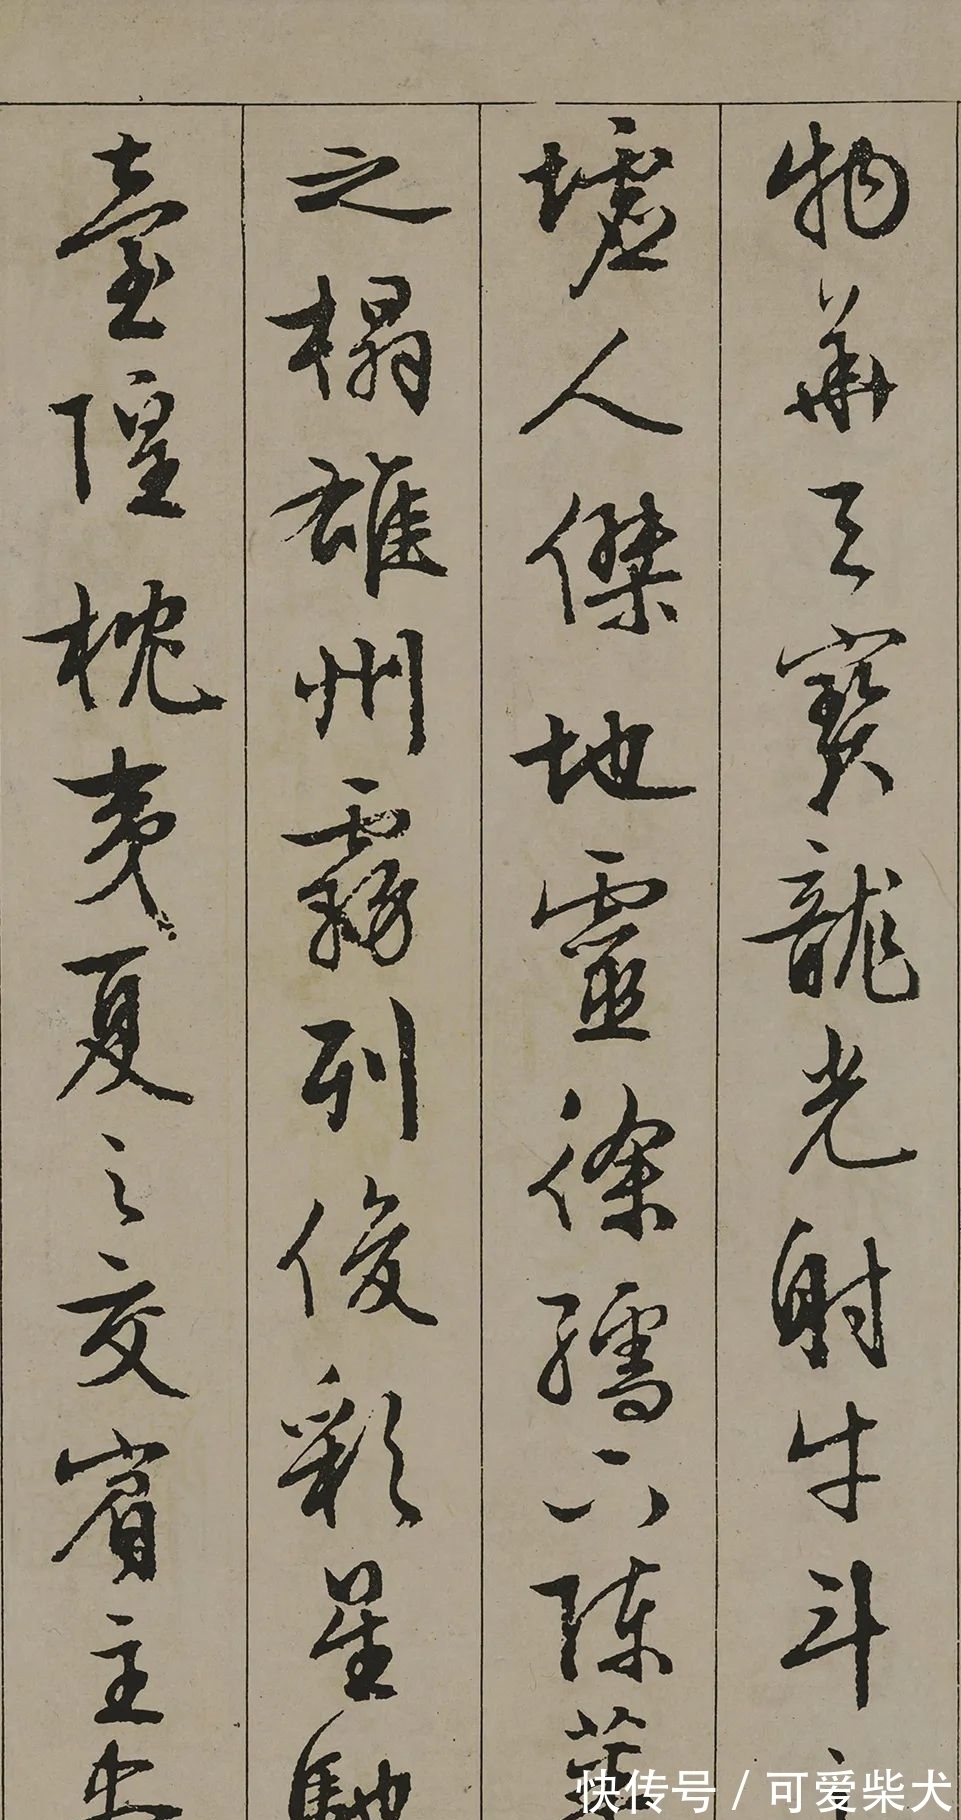 物華天寶龍光射牛斗
墟人傑地靈徐孺下陳蕃
之榻雄州霧列俊彩星馳
臺隍枕夷夏之交賓主盡
快传号 / 可爱柴犬